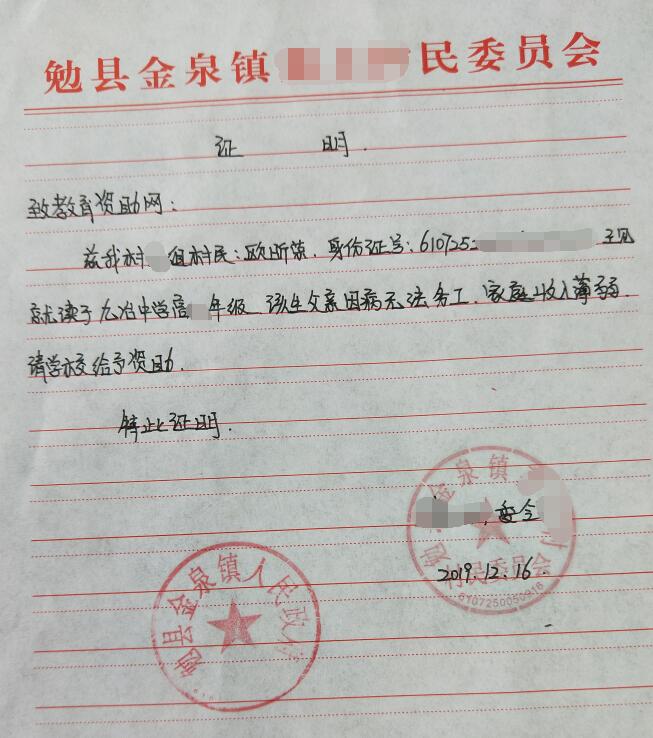 勉县金泉镇 民委员会
证 明.
致教育资助网:
兹我村 组村民:欧昕筑.身份证号:610725 现
就读于九冶中学高 年级.该生父亲因病无法务工.家庭收入薄弱.
请学校给予资助.
特此证明.
村委会
2019.12.16.
勉县金泉镇 村民委员会
6107250050916
勉县金泉镇人民政府